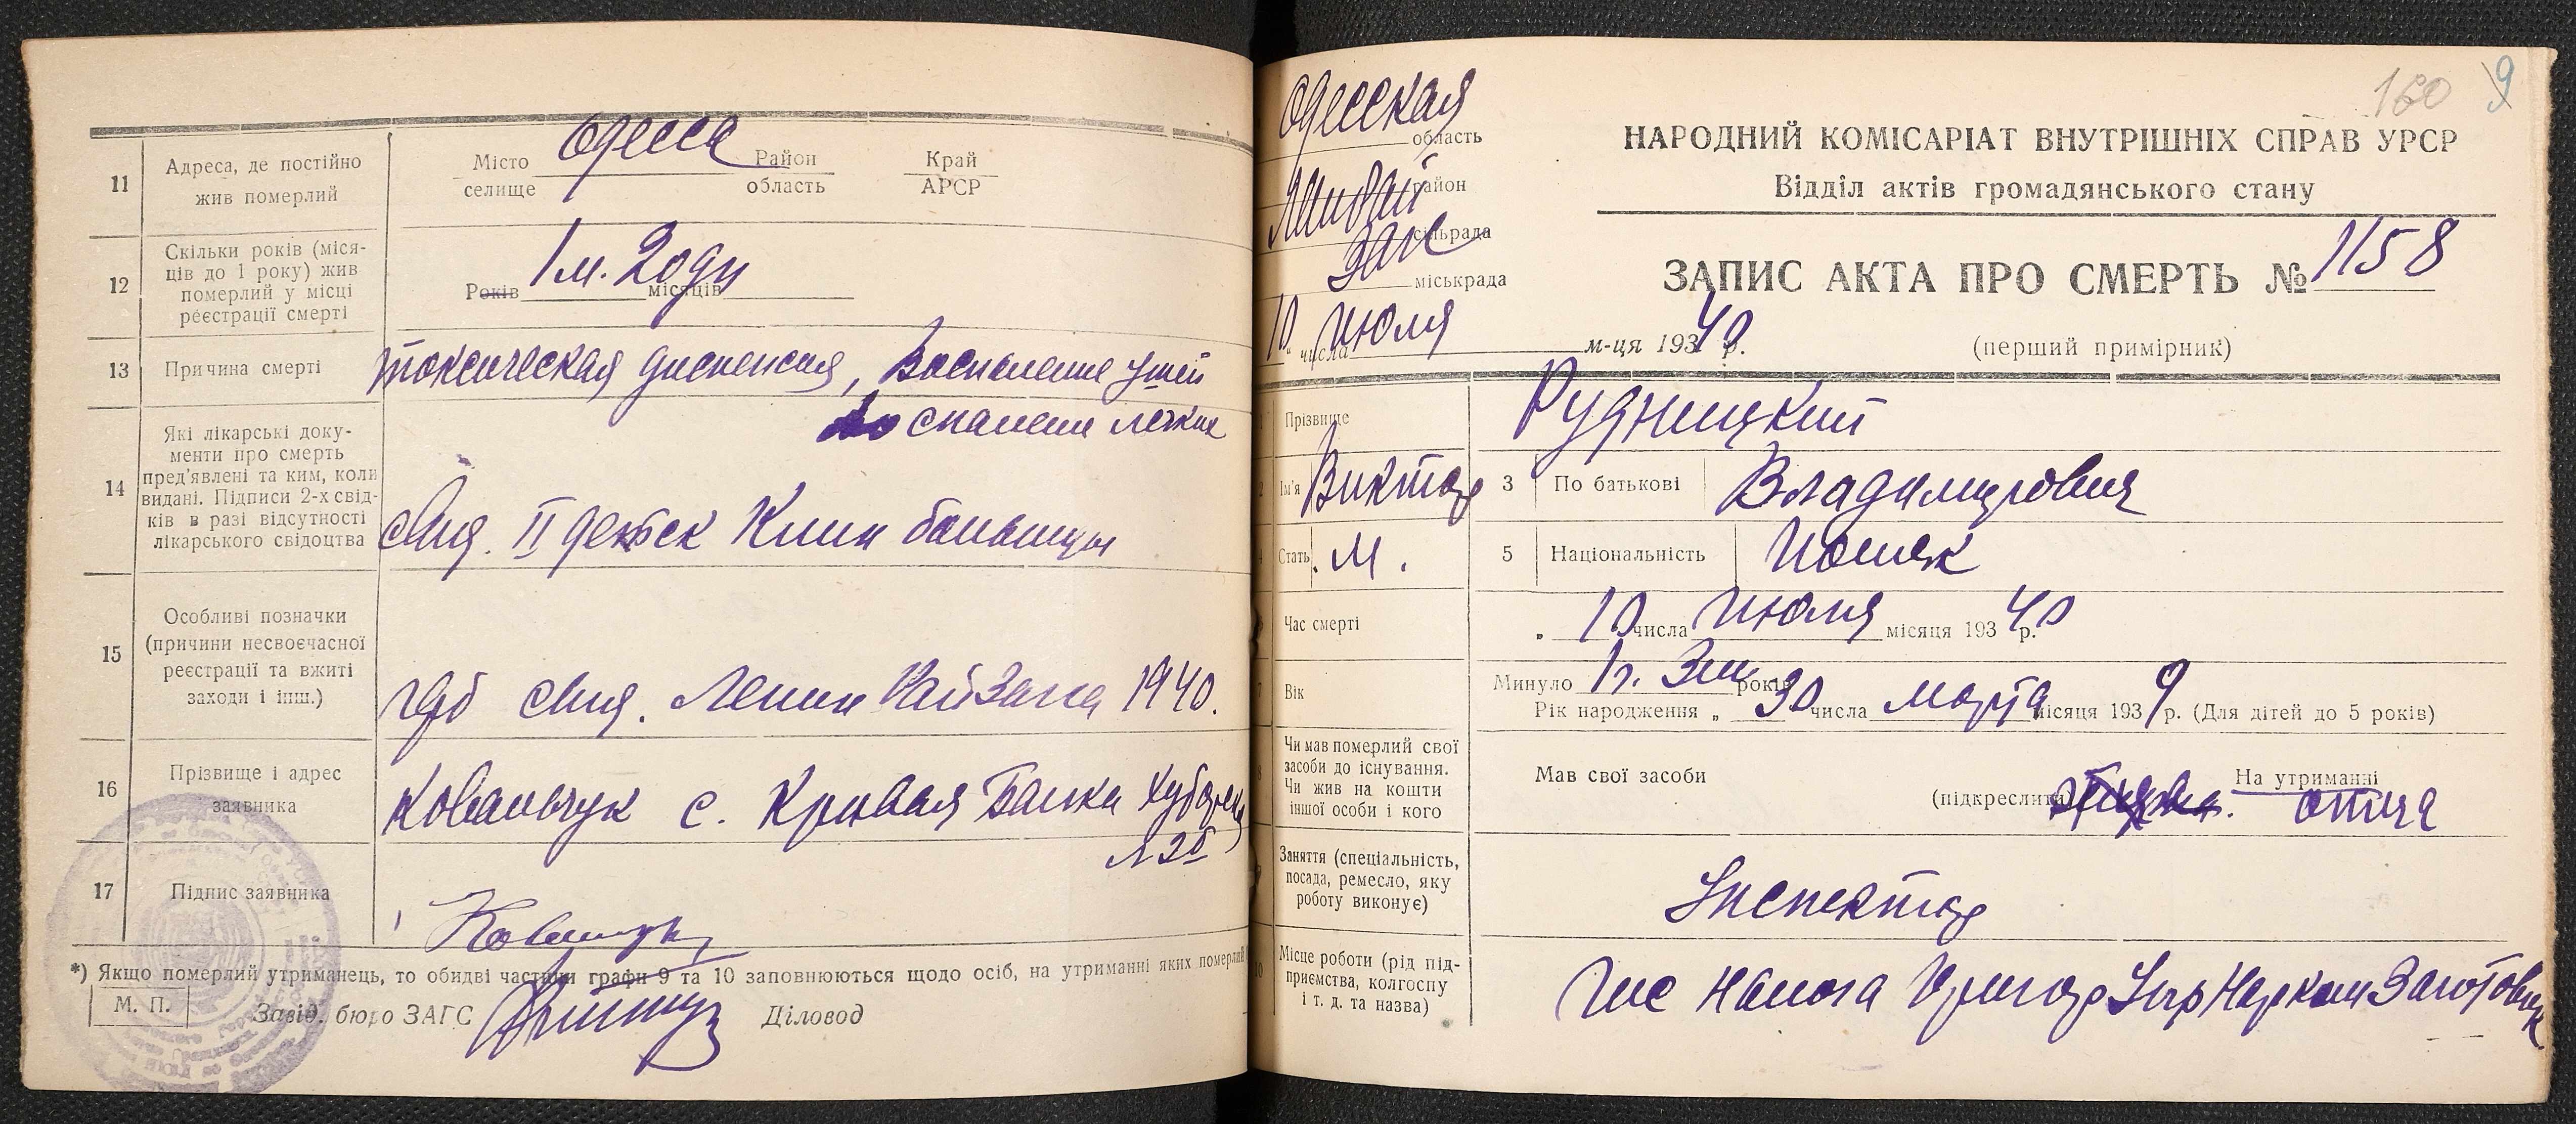 11
Адреса, де постійно
жив померлий
Місто Одесса Район Край
селище область АРСР
12
Скільки років (міся-
ців до 1 року) жив
померлий у місці
реєстрації смерті
1 м. 2 оди
Років місяців
13
Причина смерті
токсическая диспепсия, Воспаление ушей
воспаление легких
14
Які лікарські доку-
менти про смерть
пред'явлені та ким, коли
видані. Підписи 2-х свід-
ків в разі відсутності
лікарського свідоцтва
II детск Клин больницы
15
Особливі позначки
(причини несвоєчасної
реєстрації та вжиті
заходи і інш.)
Ленин РайЗагса 1940.
16
Прізвище і адрес
заявника
Ковальчук с. Кривая Балка
17
Підпис заявника
Ковальчук
*) Якщо померлий утриманець, то обидві частини графи 9 та 10 заповнюються щодо осіб, на утриманні яких померлий
М. П.
Завід. бюро ЗАГС Діловод
160 9
Одесская
область
район
сільрада
Заг
міськрада
НАРОДНИЙ КОМІСАРІАТ ВНУТРІШНІХ СПРАВ УРСР
Відділ актів громадянського стану
ЗАПИС АКТА ПРО СМЕРТЬ № 1158
10 " числа Июля м-ця 193 40 р. (перший примірник)
1 Прізвище Рудницкий
2 Ім'я Виктор 3 По батькові Владимирович
4 Стать М. 5 Національність Поляк
Час смерті „ 10 числа Июля місяця 193 40 р.
7 Вік
Минуло 1 г. 3 м років
Рік народження „ 30 числа Марта місяця 193 9 р. (Для дітей до 5 років)
8
Чи мав померлий свої
засоби до існування.
Чи жив на кошти
іншої особи і кого
Мав свої засоби
На утриманні
(підкреслити) отца
Заняття (спеціальність,
посада, ремесло, яку
роботу виконує)
Інспектор
10
Місце роботи (рід під-
приємства, колгоспу
і т. д. та назва)